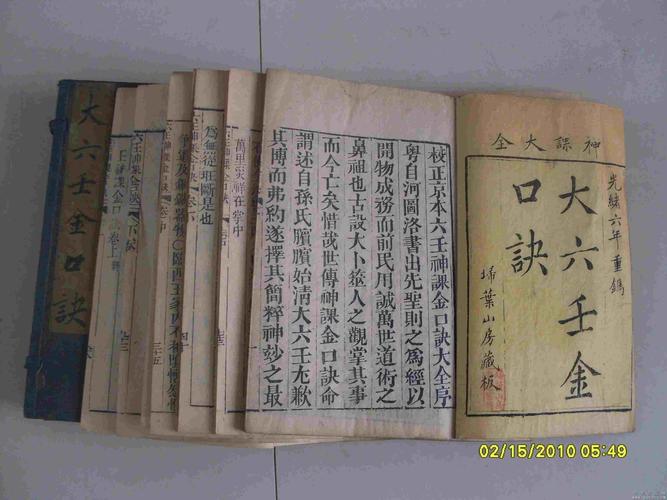 神課大全
光緒六年重鐫
大六壬金
口訣
埽葉山房藏板
校正京本六壬神課金口訣大全序
粤自河圖洛書出先聖則之爲經以
開物成務而前民用誠萬世道術之
鼻祖也古設大卜筮人之觀掌其事
而今亡矣惜哉世傳神課金口訣命
謂述自孫氏臏臏始清大六壬尤歉
其博而弗約遂擇其簡粹神妙之最
萬里災祥在掌中
爲無從旺斷是也
三十五
大六壬金口訣
02/15/2010 05:49